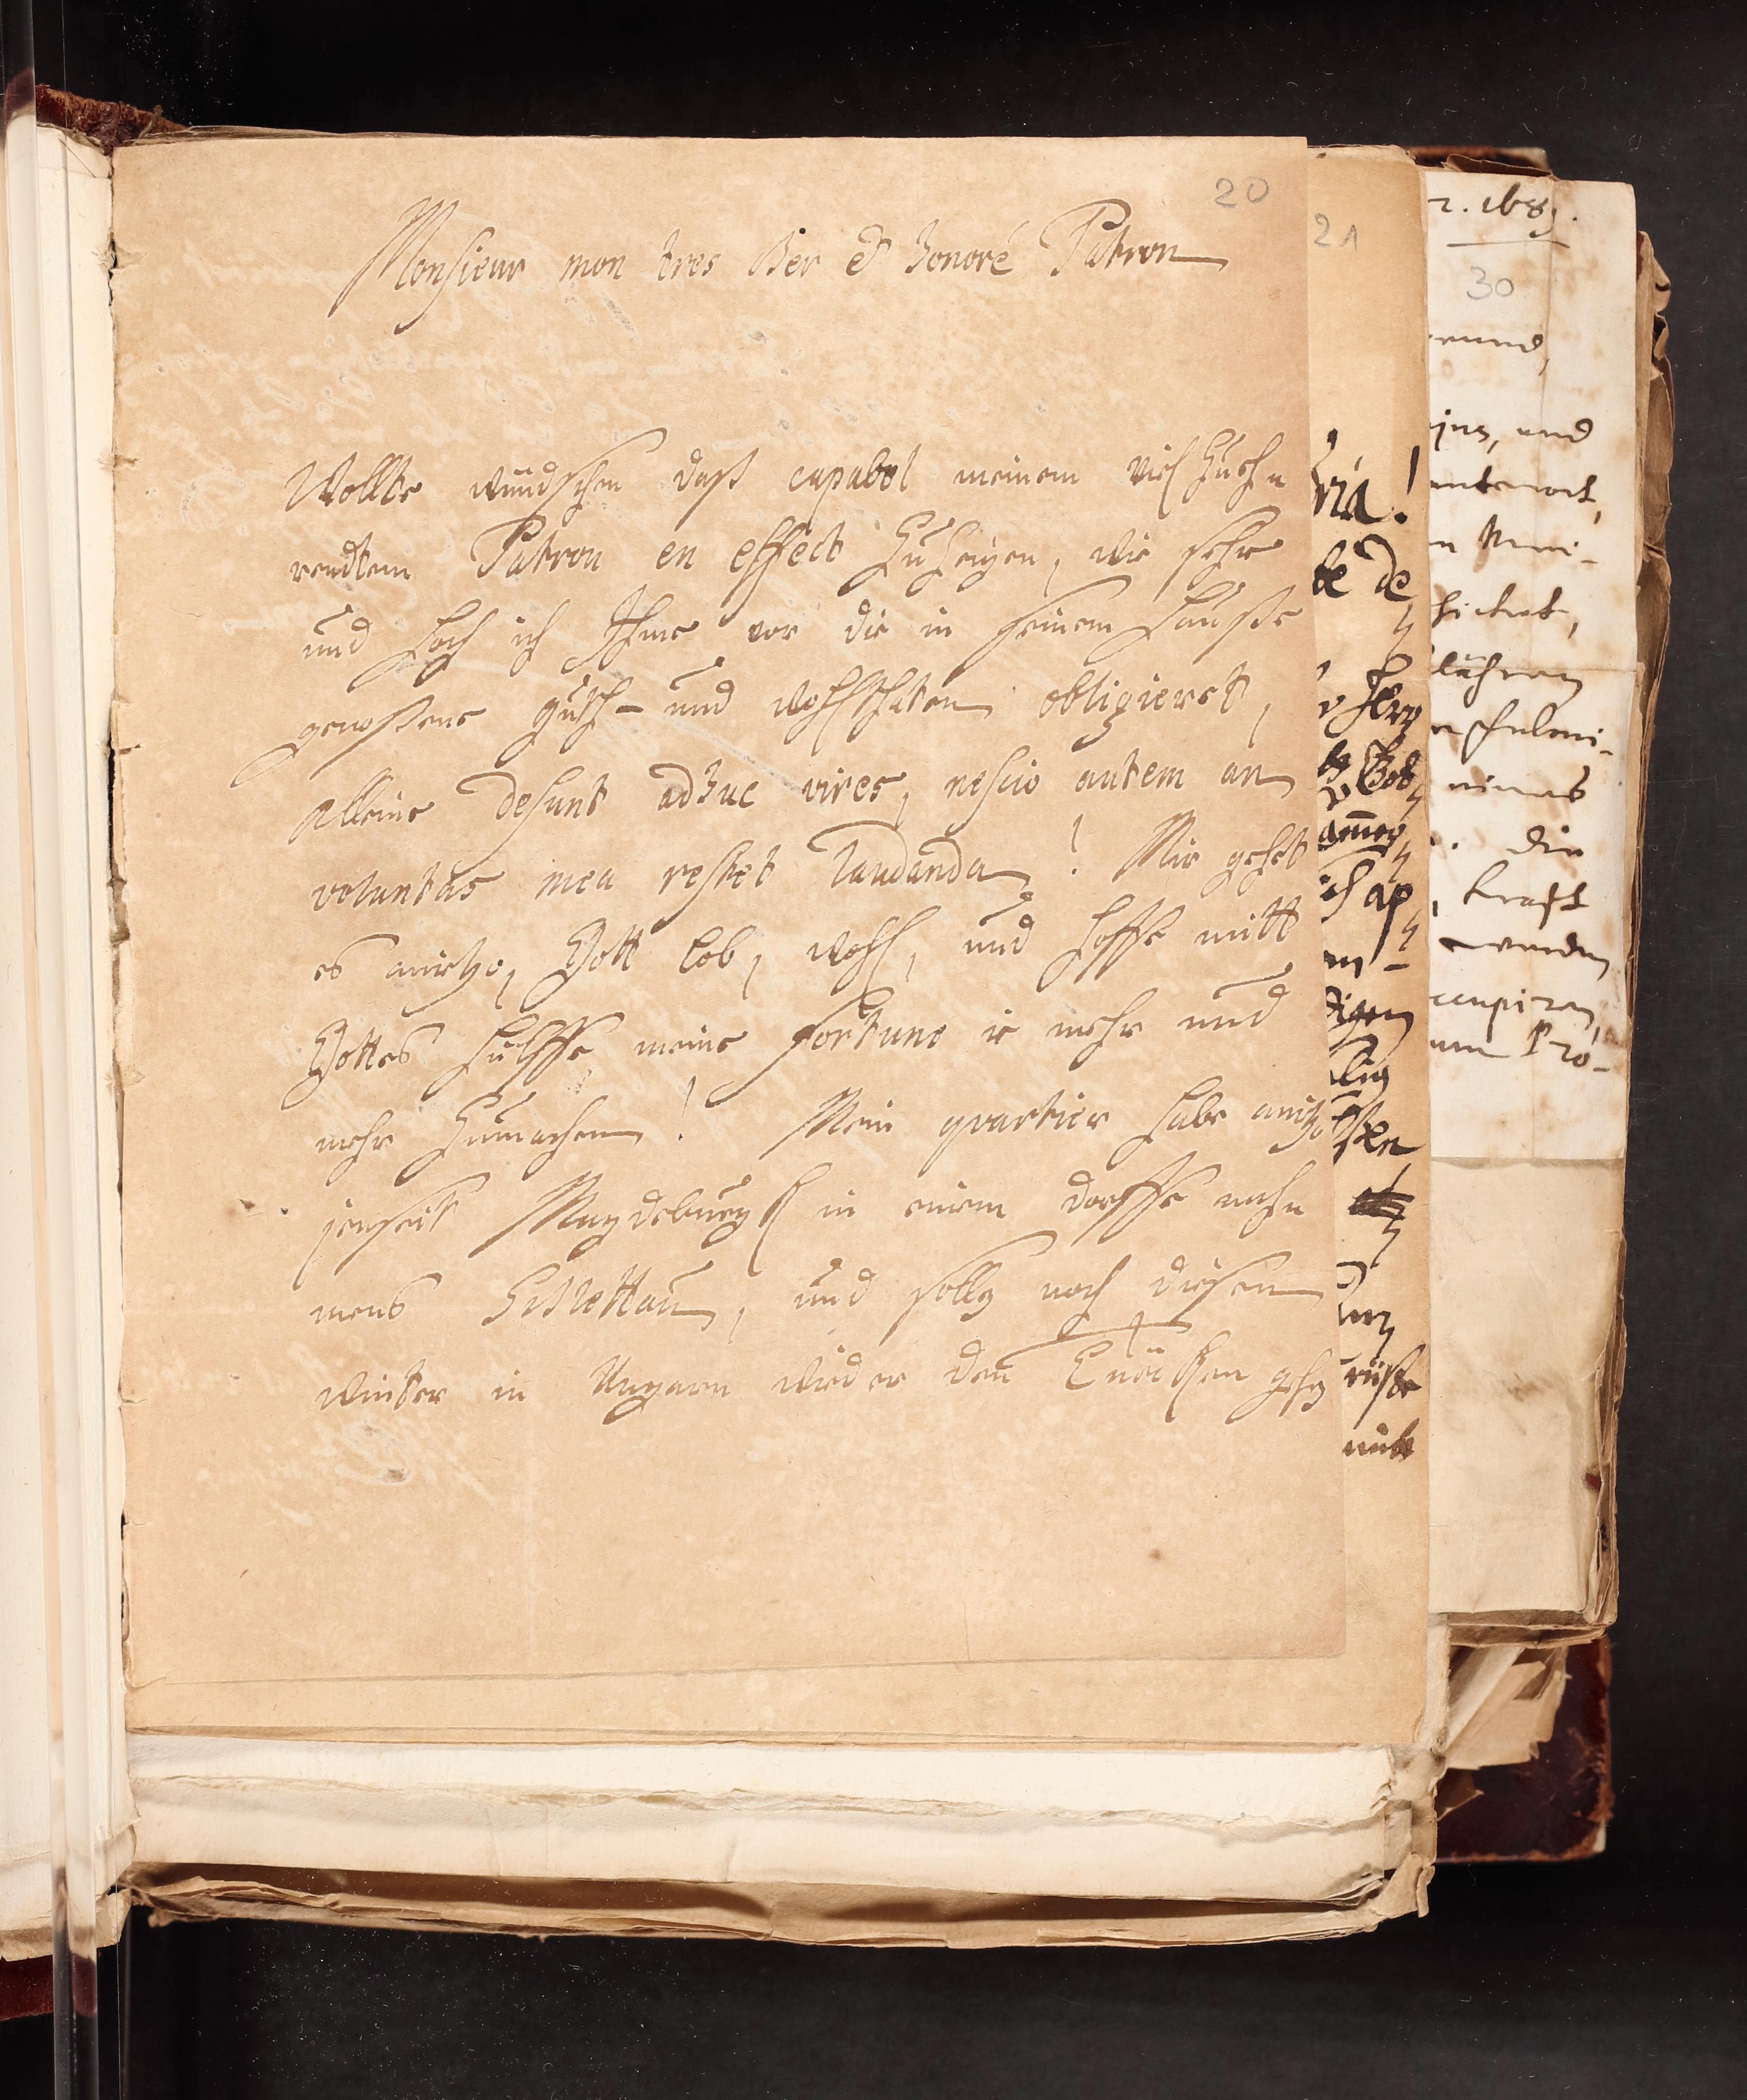 20
Monsieur mon tres cher et honoré Patron
Wollte wündschen daß capabel meinem viel zu eh
rendtem Patron en effect zu zeigen, wie sehr
und hoch ich Ihme vor die in seinem Hauße
genoßene guth- und wohlthaten obligieret,
alleine desunt adhuc vires, nescio autem an
voluntas mea restet laudanda! Mir gehet
es anietzo, Gott lob, wohl, und hoffe mitt
Gottes hülffe meine fortune ie mehr und
mehr zumachen! Mein quartier habe anitzo
jenseit Magdeburgk in einem dorffe nah
mens, und solln noch diesen
winter in Ungarn wieder den gehn
21
ria!
te de
ap
üste
mitt
30
und
antwort,
die
, krafft
werden
um Pro-